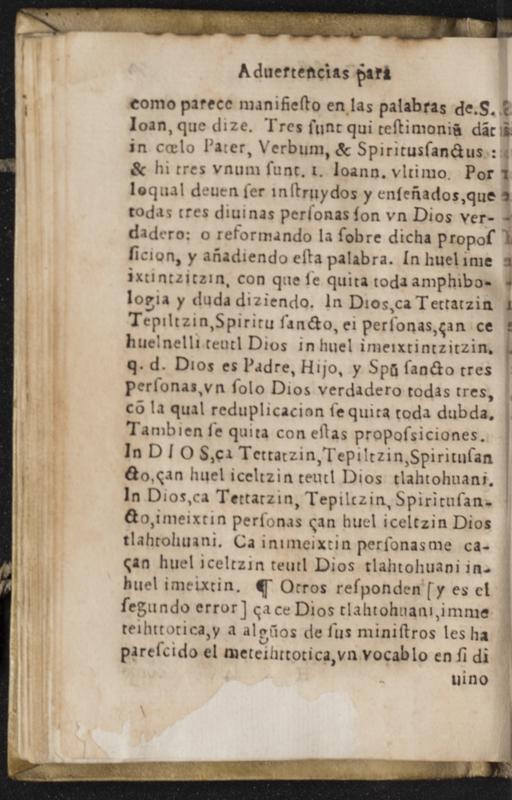 Aduertencias para
como parece manifiesto en las palabras de.S.
Ioan, que dize. Tres sunt qui testimoniũ dãt
in cœlo Pater, Verbum, & Spiritussanctus :
& hi tres vnum sunt. 1. Ioann. vltimo. Por
loqual deuen ser instruydos y enseñados,que
todas tres diuinas personas son vn Dios ver-
dadero: o reformando la sobre dicha propos
sicion, y añadiendo esta palabra. In huel ime
ixtintzitzin, con que se quita toda amphibo-
logia y duda diziendo. In Dios,ca Tettatzin
Tepiltzin,Spiritu sancto, ei personas,çan ce
huelnelli teutl Dios in huel imeixtintzitzin.
q. d. Dios es Padre, Hijo, y Spũ sancto tres
personas,vn solo Dios verdadero todas tres,
cõ la qual reduplicacion se quita toda dubda.
Tambien se quita con estas propossiciones.
In DIOS,ca Tettatzin,Tepiltzin,Spiritusan
cto,çan huel iceltzin teutl Dios tlahtohuani.
In Dios,ca Tettatzin, Tepiltzin, Spiritusan-
cto,imeixtin personas çan huel iceltzin Dios
tlahtohuani. Ca inimeixtin personasme ca-
çan huel iceltzin teutl Dios tlahtohuani in-
huel imeixtin. ¶ Otros responden [y es el
segundo error] ça ce Dios tlahtohuani,imme
teihttotica,y a algũos de sus ministros les ha
parescido el meteihttotica,vn vocablo en si di
uino